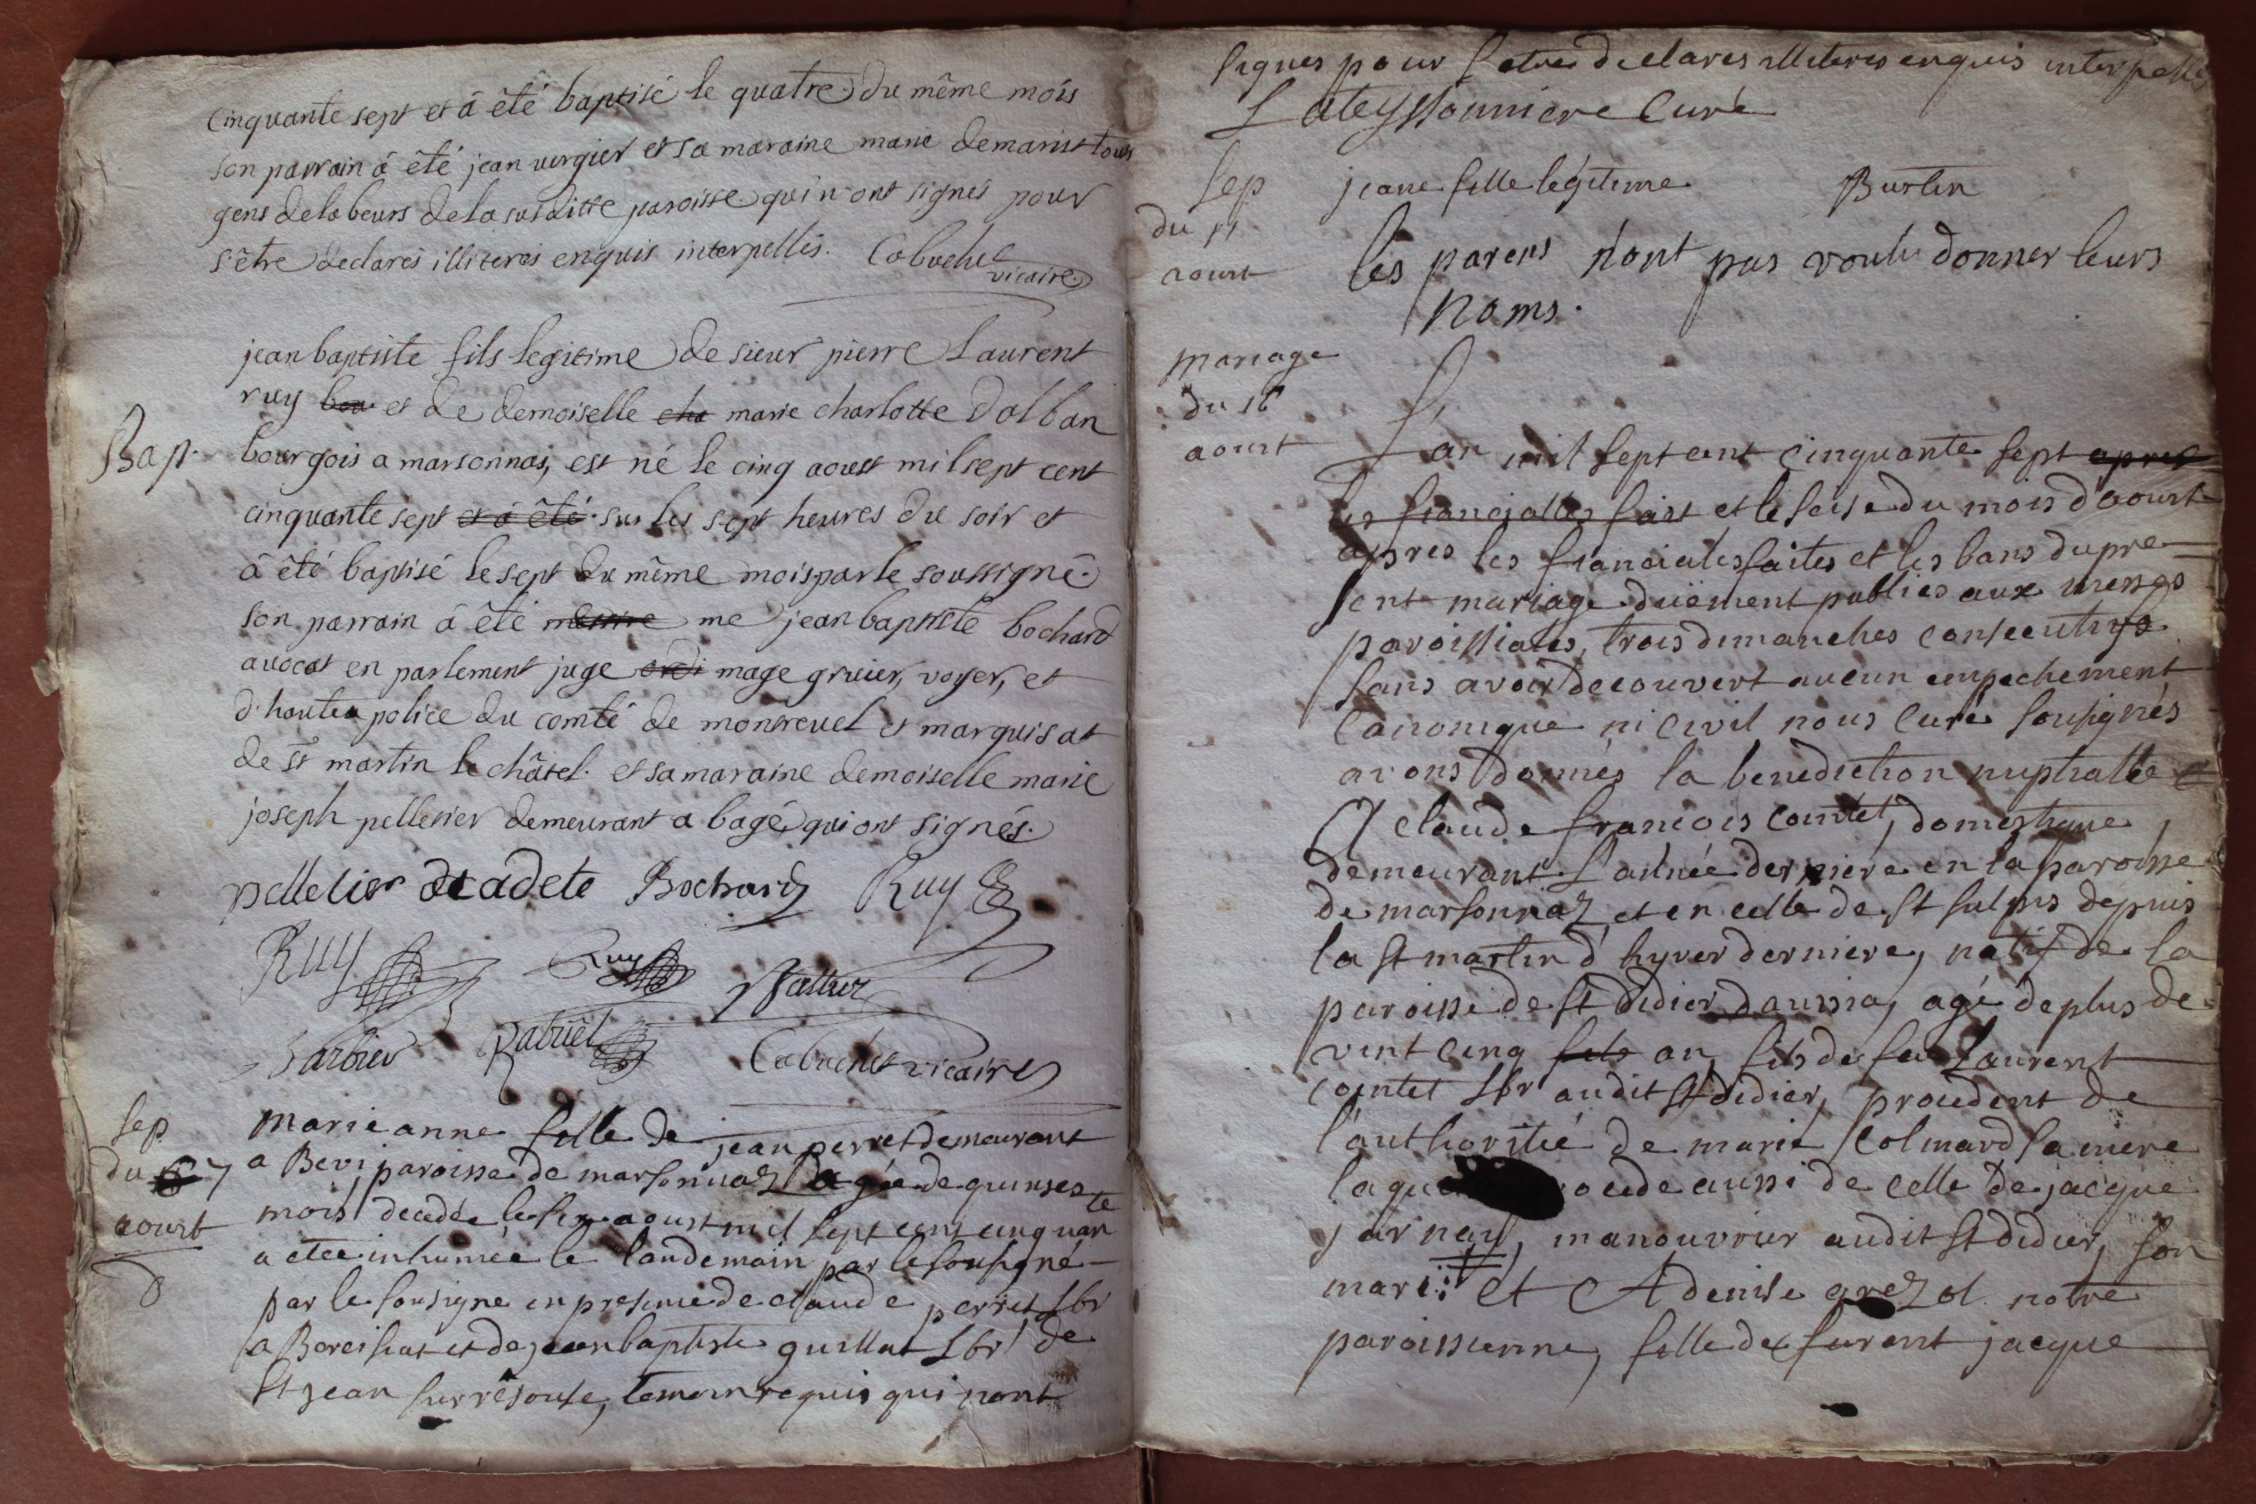 cinquante sept et à êté baptisé le quatre du même mois
son parrain à êté jean vergier et sa maraine marie demarist tous
gens de labeurs de la susditte paroisse qui n'ont signés pour
s'être declarés illiterés enquis interpellés. Cabuchet
vicaire
jean baptiste fils legitime de sieur pierre Laurent
ruy bou et de demoiselle cha marie charlotte Dalban
Bap. bourgois a marsonnas, est né le cinq aoust mil sept cent
cinquante sept et à êté sur les sept heures du soir et
à êté baptisé le sept du même mois par le soussigné.
son parrain à êté me jean baptiste bochard
avocat en parlement juge ordi mage gruier, voyer, et
d'hautea police du comté de montrevel et marquisat
de st martin le châtel. et sa maraine demoiselle marie
joseph pelletier demeurant a bagé qui ont signés.
pelletier decadete Bochard Ruy
Ruy Ruy
Barbier Rabuel Cabuchet vicaire
Sep marie anne fille de jean perret demeurant
du 6 7 a Bevi paroisse de marsonnaz agée de quinse
aoust mois decedée le six aoust mil sept cent cinquante
a etée inhumée le landemain par le sousigné
par le sousigné en presence de claude perret Lbr
a Bereisiat et de jean baptiste guillat Lbr de
St jean sur resouse, temoin requis qui n'ont
signes pour s'etre declares illiteres enquis interpellés
Lateyssonniere Curé
Sep jeane fille légitime Burtin
du 11
aoust les parens n'ont pas voulu donner leurs
noms.
mariage
du 16
aoust L'an mil sept cent cinquante sept apres
les fiancialles fait et le seise du mois d'aoust
apres les fianciales faites et les bans du pre-
sent mariage duëment publiés aux messes
paroissiales, trois dimanches consecutifs
sans avoir decouvert aucun empechement
Canonique ni civil nous Curé sousignés
avons donnés la benediction nuptialle
A claude francois cointet, domestique
demeurant L'année derniere en la paroisse
de marsonnaz et en celle de St sulpis depuis
la st martin d'hyver derniere, natif de la
paroisse de st didier daussia, agé de plus de
vint cinq fils an, fils de feu Laurent
cointet Lbr audit St didier, procedent de
l'authoritié de marie Colmard sa mere
procede aussi de celle de jacque
jarnay, manouvrier audit St didier, son
mari: et A denise grezol notre
paroissienne, fille de furent jacque